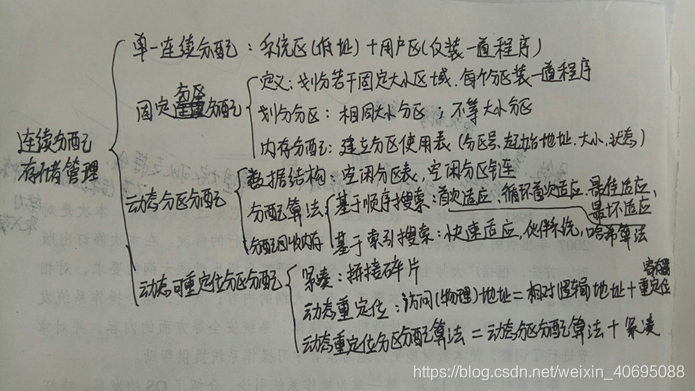 单一连续分配：系统区(低址)＋用户区(仅装一道程序)
固定分区分配
定义：划分若干固定大小区域，每个分区装一道程序
划分分区：相同大小分区；不等大小分区
内存分配：建立分区使用表(分区号、起始地址、大小、状态)
连续分配
存储器管理
动态分区分配
数据结构：空闲分区表，空闲分区链
分配算法
基于顺序搜索：首次适应，循环首次适应，最佳适应，
最坏适应
基于索引搜索：快速适应，伙伴系统，哈希算法
分配回收内存
动态可重定位分区分配
紧凑：拼接碎片
动态重定位：访问(物理)地址＝相对(逻辑)地址＋重定位
寄存器
动态重定位分区分配算法＝动态分区分配算法＋紧凑
https://blog.csdn.net/weixin_40695088